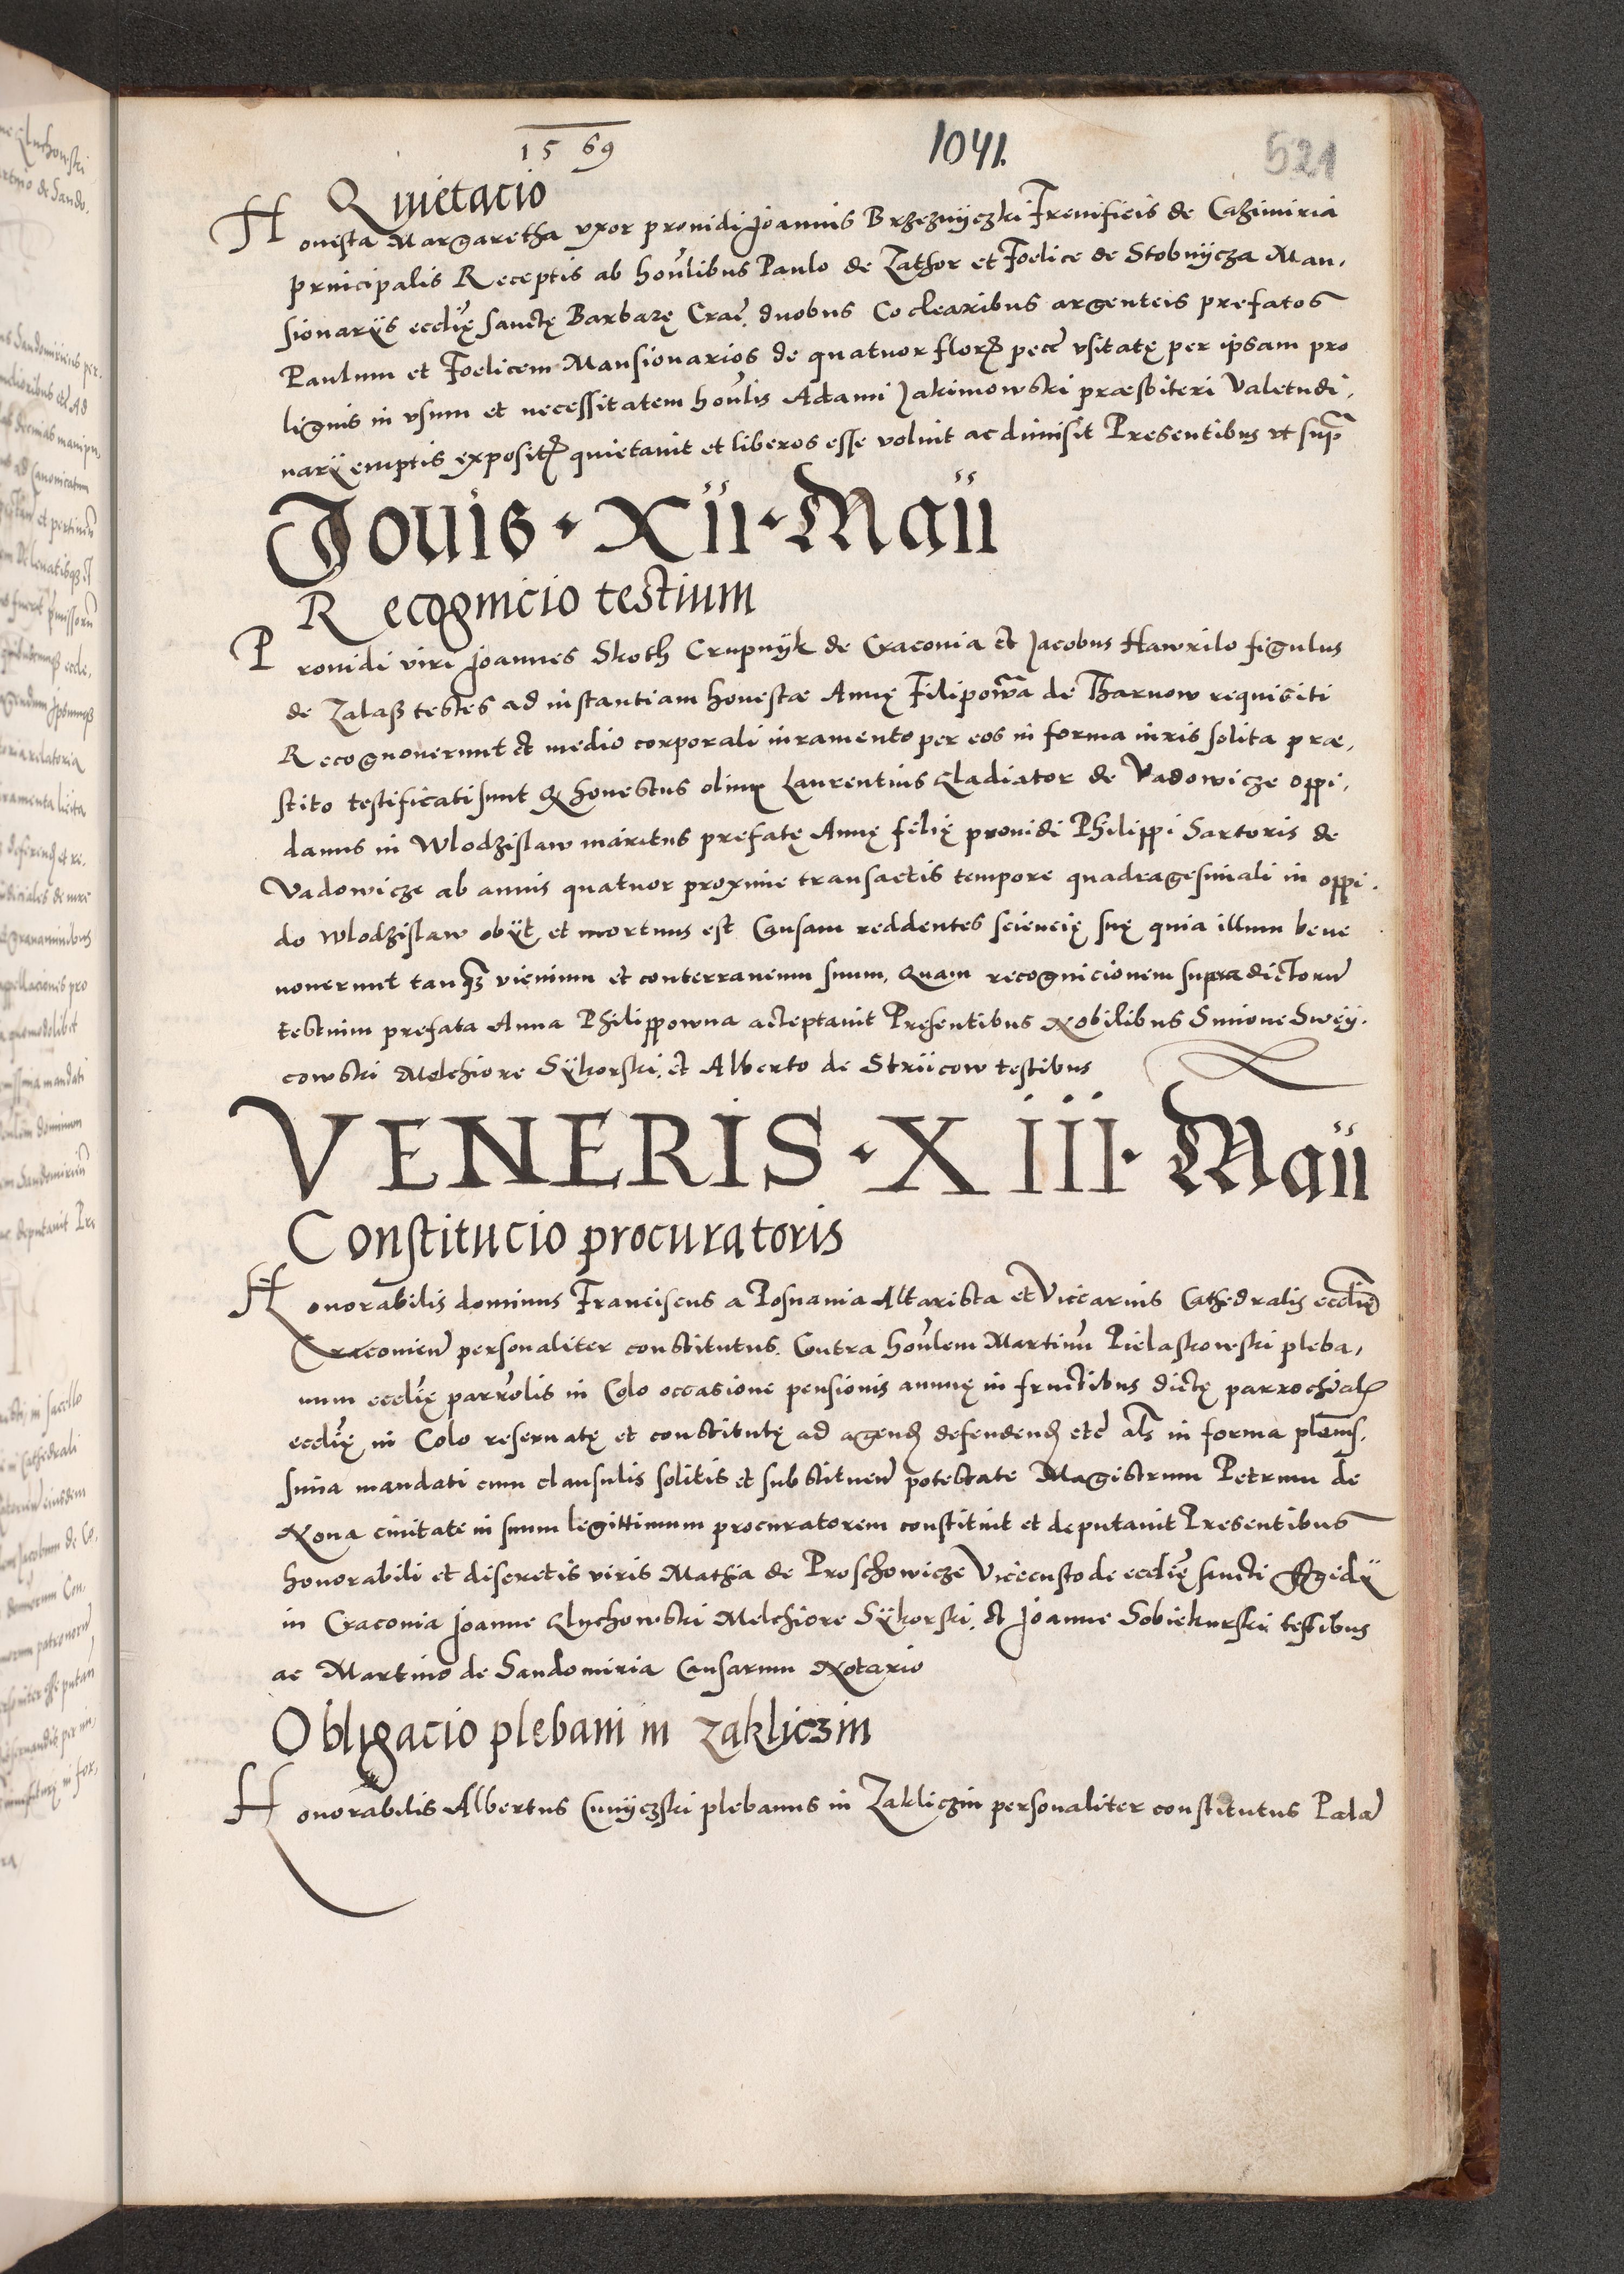 1569
1041.
521
Quietacio
Honesta Margaretha vxor prouidi Joannis Brzeznyczki Frenificis de Cazimiria
principalis Receptis ab hon̄libus Paulo de Zathor et Foelice de Stobnycza Man,
sionarijs eccl̄ię sanctę Barbarę Crac̄. duobus Coclearibus argenteis prefatos
Paulum et Foelicem Mansionarios de quatuor flor̄ pec̄ vsitatę per ipsam pro
lignis in vsum et necessitatem hon̄lis Adami Jakimowski præsbiteri Valetudi,
narij emptis exposit̄ quietauit et liberos esse voluit ac dimisit Presentibus vt supra
Jouis · XII · Maii
Recognicio testium
Prouidi viri Joannes Skoth Crupnyk de Craconia et Jacobus Hawrilo figulus
de Zalasz testes ad instantiam honestæ Annę Filipowna de Tharnow requisiti
Recognouerunt et medio corporali iuramento per eos in forma iuris solita præ,
stito testificati sunt Q honestus olim Laurentius Gladiator de Vadowicze oppi,
danus in Wlodzislaw maritus prefatę Annę filię prouidi Philippi Sartoris de
Vadowicze ab annis quatuor proxime transactis tempore quadragesimali in oppi,
do Wlodzislaw obijt et mortuus est Causam reddentes sciencię suę quia illum bene
nouerunt tanq̄ vicinum et conterraneum suum, Quam recognicionem supradictorum̄
testium prefata Anna Philippowna acceptauit Presentibus Nobilibus Simone Swęy,
cowski Melchiore Sykorski, et Alberto de Striicow testibus
VENERIS · XIII · Maii
Constitucio procuratoris
Honorabilis dominus Franciscus a Posnania Altarista et Viccarius Cathedralis eccl̄ię
Cracouien̄ personaliter constitutus. Contra hon̄lem Martinū Pielaskowski pleba,
num eccl̄ię parr̄olis in Colo occasione pensionis annuę in fructibus dictę parrochial̄
eccl̄ię in Colo reseruatę et constitutę ad agend̄ defendend̄ etc̄ al̄s in forma plenis,
sima mandati cum clausulis solitis et substituen̄ potestate Magistrum Petrum de
Noua ciuitate in suum legittimum procuratorem constituit et deputauit Presentibus
honorabili et discretis viris Mathia de Proschowicze Vicecustode eccl̄ię sancti Ægidij
in Craconia Joanne Gluchowski Melchiore Sykorski, et Joanne Sobiekurski testibus
ac Martino de Sandomiria Causarum Notario
Obligacio plebani in Zakliczin
Honorabilis Albertus Cunyczski plebanus in Zakliczin personaliter constitutus Palam̄